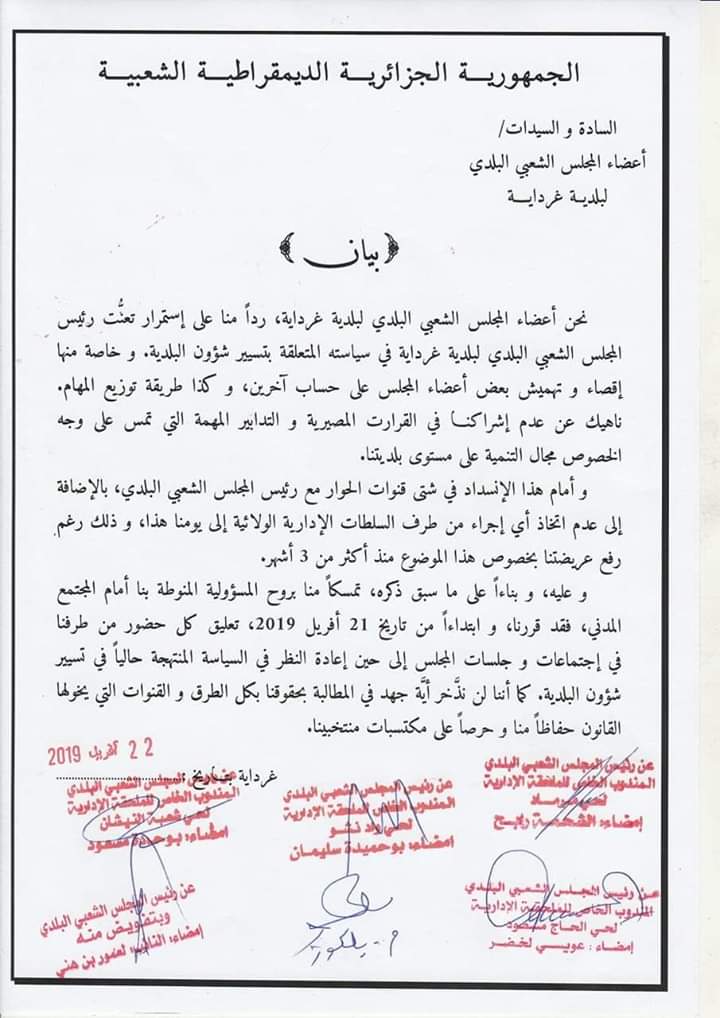 الجمهوريـــة الجزائريـــة الديمقراطيـــة الشعبيـــة
السادة و السيدات/
أعضاء المجلس الشعبي البلدي
لبلديـة غردايـــة
﴿بيان﴾
نحن أعضاء المجلس الشعبي البلدي لبلدية غرداية، رداً منا على إستمرار تعنُّت رئيس
المجلس الشعبي البلدي لبلدية غرداية في سياسته المتعلقة بتسيير شؤون البلدية. و خاصة منها
إقصاء و تهميش بعض أعضاء المجلس على حساب آخرين، و كذا طريقة توزيع المهام.
ناهيك عن عدم إشراكنـــا في القرارت المصيرية و التدابير المهمة التي تمس على وجه
الخصوص مجال التنمية على مستوى بلديتنا.
و أمام هذا الإنسداد في شتى قنوات الحوار مع رئيس المجلس الشعبي البلدي، بالإضافة
إلى عدم اتخاذ أي إجراء من طرف السلطات الإدارية الولائية إلى يومنا هذا، و ذلك رغم
رفع عريضتنا بخصوص هذا الموضوع منذ أكثر من 3 أشهر.
و عليه، و بناءاً على ما سبق ذكره، تمسكاً منا بروح المسؤولية المنوطة بنا أمام المجتمع
المدني، فقد قررنا، و ابتداءاً من تاريخ 21 أفريل 2019، تعليق كل حضور من طرفنا
في إجتماعات و جلسات المجلس إلى حين إعادة النظر في السياسة المنتهجة حالياً في تسيير
شؤون البلدية. كما أننا لن نذَّخر أيَّة جهد في المطالبة بحقوقنا بكل الطرق و القنوات التي يخولها
القانون حفاظاً منا و حرصاً على مكتسبات منتخبينا.
22 أفريل 2019
غرداية بتاريخ :
عن رئيس المجلس الشعبي البلدي
المندوب الخاص للملحقة الإدارية
لحي
إمضاء: رابح
عن رئيس المجلس الشعبي البلدي
المندوب الخاص للملحقة الإدارية
لحي واد نشو
إمضاء: بوحميدة سليمان
عن رئيس المجلس الشعبي البلدي
المندوب الخاص للملحقة الإدارية
لحي شعبة النيشان
إمضاء: بوحميدة مسعود
عن رئيس المجلس الشعبي البلدي
المندوب الخاص للملحقة الإدارية
لحي الحاج مسعود
إمضاء : عويسي لخضر
عن رئيس المجلس الشعبي البلدي
وبتفويض منه
إمضاء: النائب: بن هني